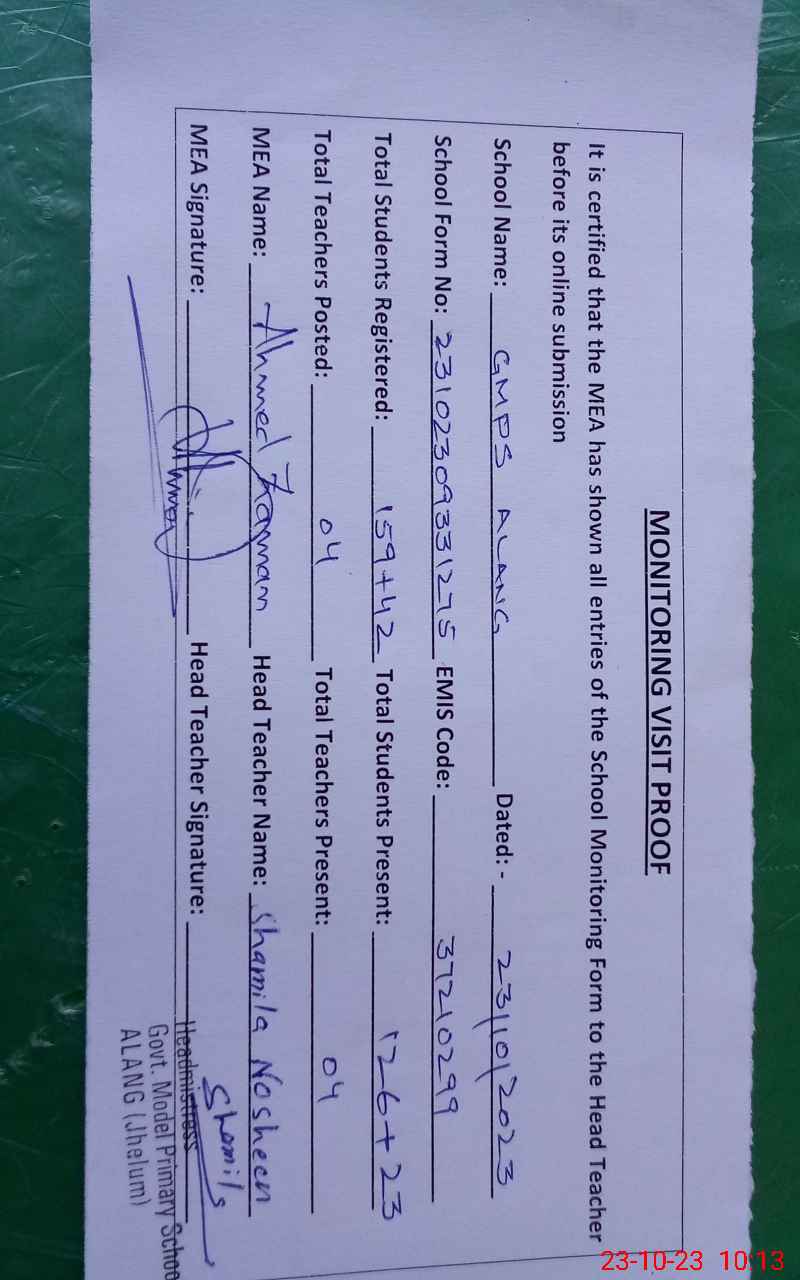 MONITORING VISIT PROOF
It is certified that the MEA has shown all entries of the School Monitoring Form to the Head Teacher
before its online submission
School Name: GMPS ALANG Dated:- 23/10/2023
School Form No: 23102309331275 EMIS Code: 37210299
Total Students Registered: 159+42 Total Students Present: 126+23
Total Teachers Posted: 04 Total Teachers Present: 04
MEA Name: Ahmed Zaman Head Teacher Name: Shamila Nosheen
MEA Signature: Head Teacher Signature: Shamila
Headmistress
Govt. Model Primary Schoo
ALANG (Jhelum)
23-10-23 10:13